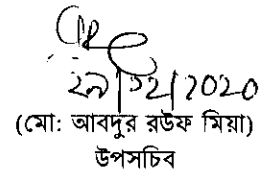 ২৯/১২/2020
(মো: আবদুর রউফ মিয়া)
উপসচিব